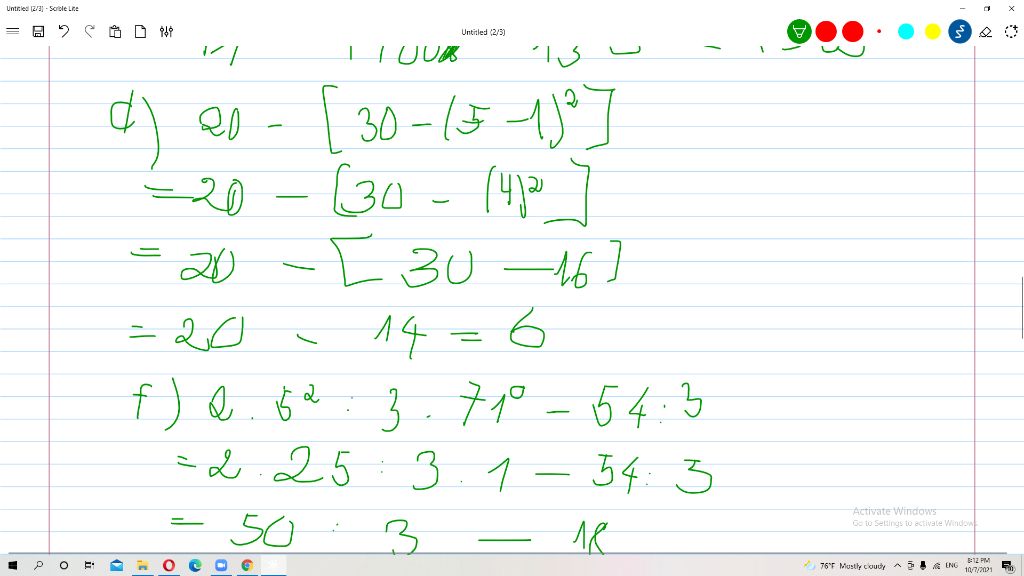 Untitled (2/3) - Scrble Lite
Untitled (2/3)
d) 20 - [30 - (5 - 1)²]
= 20 - [30 - (4)²]
= 20 - [30 - 16]
= 20 - 14 = 6
f) 2 . 5² : 3 . 71⁰ - 54 : 3
= 2 . 25 : 3 . 1 - 54 : 3
= 50 : 3 - 18
Activate Windows
Go to Settings to activate Windows.
76°F Mostly cloudy ENG 8:12 PM
10/7/2021